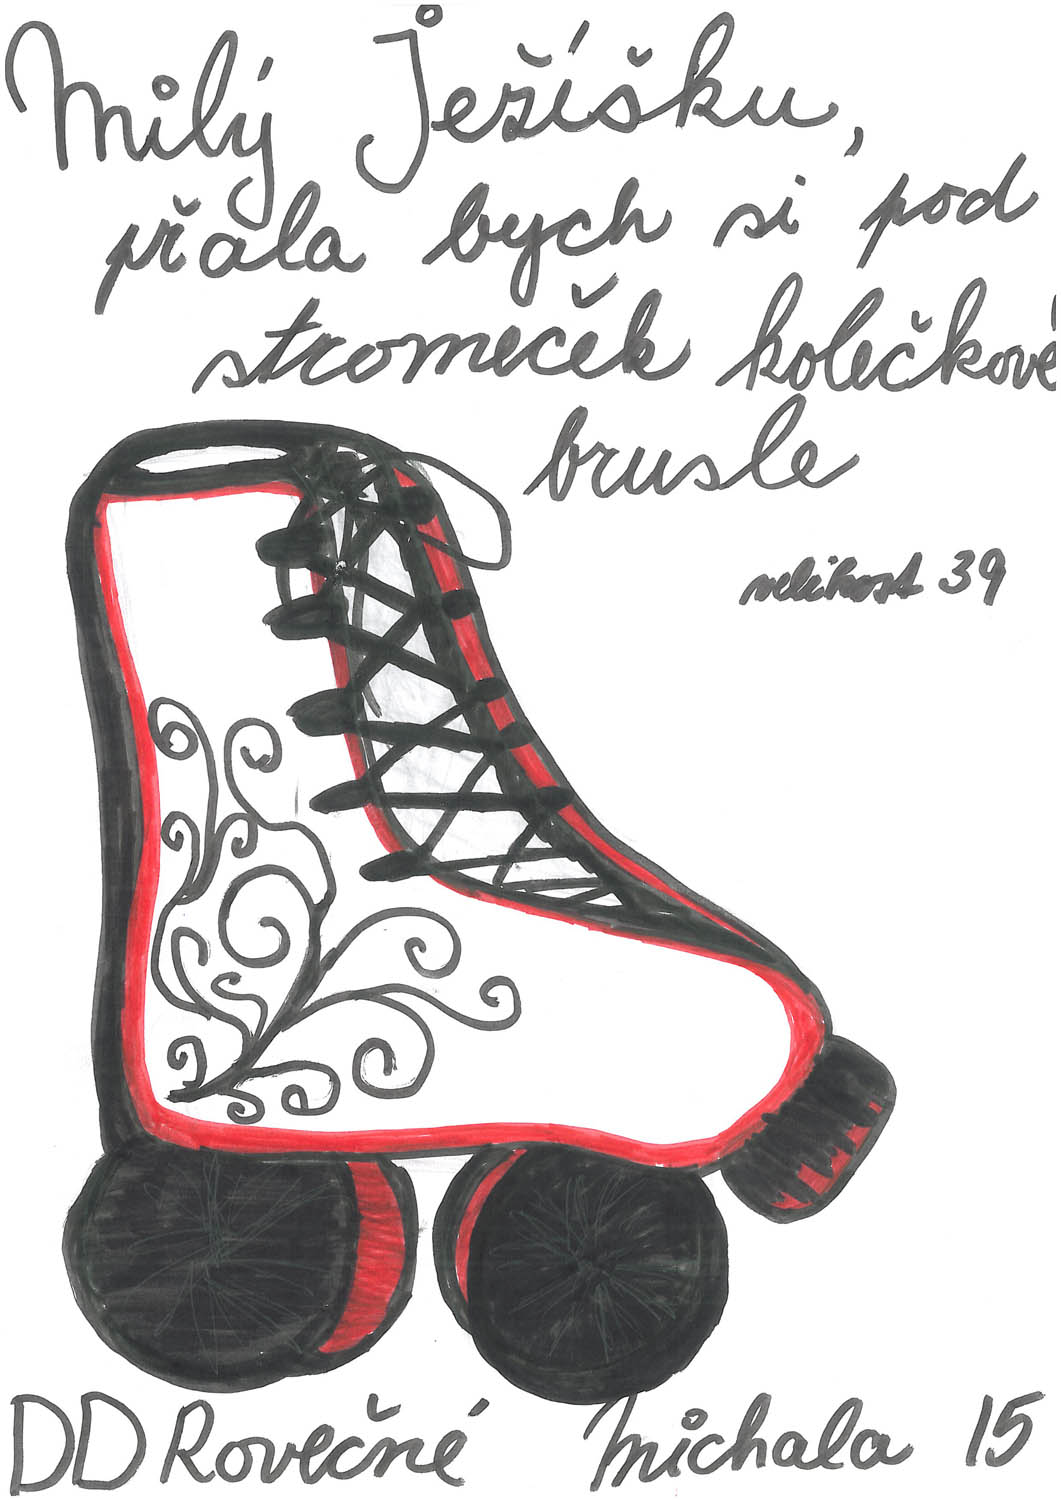 Milý Ježíšku,
přála bych si pod
stromeček kolečkové
brusle
velikost 39
DD Rovečné Michala 15